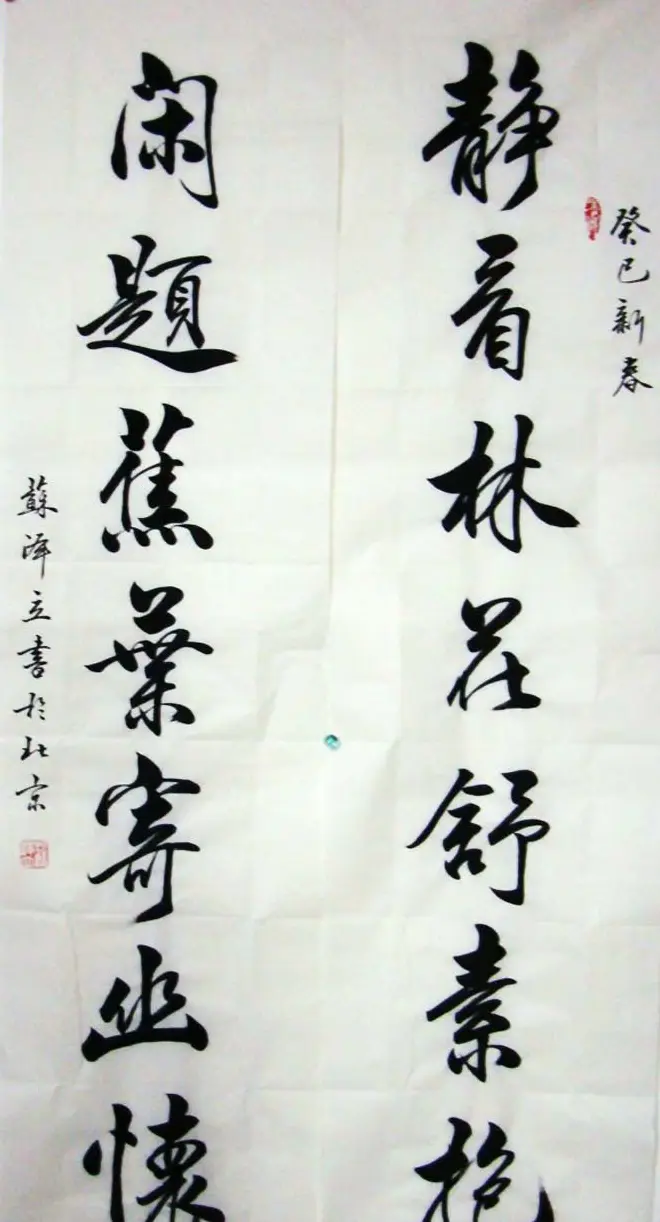 癸巳新春
静看林花舒素抱
闲題蕉葉寄幽懷
蘇澤立書於北京